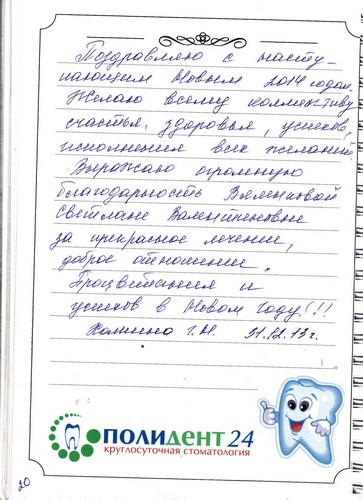 Поздравляю с насту-
пающим Новым 2014 годом.
Желаю всему коллективу
счастья, здоровья, успехов,
исполнения всех желаний
Выражаю огромную
благодарность
Светлане Валентиновне
за прекрасное лечение,
доброе отношение.
Процветания и
успехов в Новом году!!!
31.12.13г.
ПОЛИДЕНТ 24
круглосуточная стоматология
20